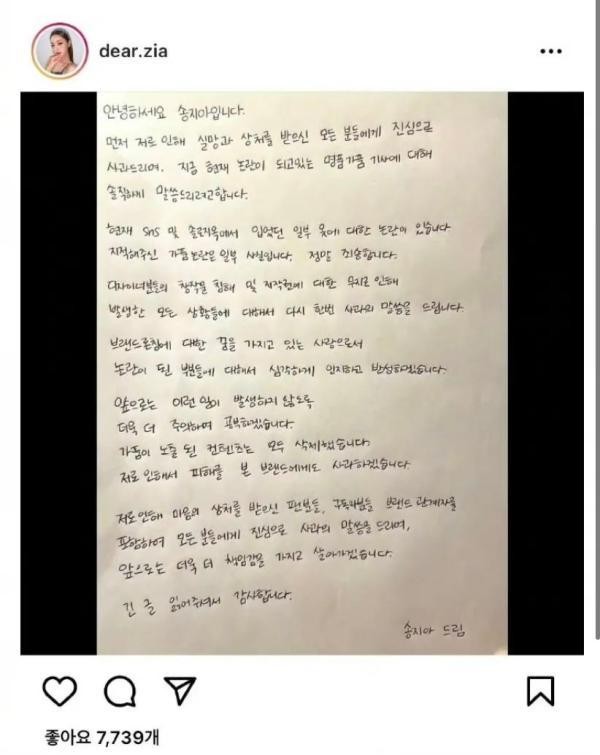 dear.zia
안녕하세요 송지아입니다.
먼저 저로 인해 실망과 상처를 받으신 모든 분들에게 진심으로
사과드리며, 지금 현재 논란이 되고있는 명품가품 기사에 대해
솔직하게 말씀드리려고합니다.
현재 SNS 및 솔로지옥에서 입었던 일부 옷에 대한 논란이 있습니다
지적해주신 가품논란은 일부 사실입니다. 정말 죄송합니다.
디자이너분들의 창작물 침해 및 저작권에 대한 무지로 인해
발생한 모든 상황들에 대해서 다시 한번 사과의 말씀을 드립니다.
브랜드론칭에 대한 꿈을 가지고 있는 사람으로서
논란이 된 부분들에 대해서 심각하게 인지하고 반성하겠습니다.
앞으로는 이런 일이 발생하지 않도록
더욱 더 주의하며 공부하겠습니다.
가품이 노출 된 컨텐츠는 모두 삭제했습니다
저로인해서 피해를 본 브랜드에게도 사과하겠습니다.
저로인해 마음의 상처를 받으신 팬분들, 구독자분들 브랜드 관계자를
포함하여 모든 분들에게 진심으로 사과의 말씀을 드리며,
앞으로는 더욱 더 책임감을 가지고 살아가겠습니다.
긴 글 읽어주셔서 감사합니다.
송지아 드림
좋아요 7,739개